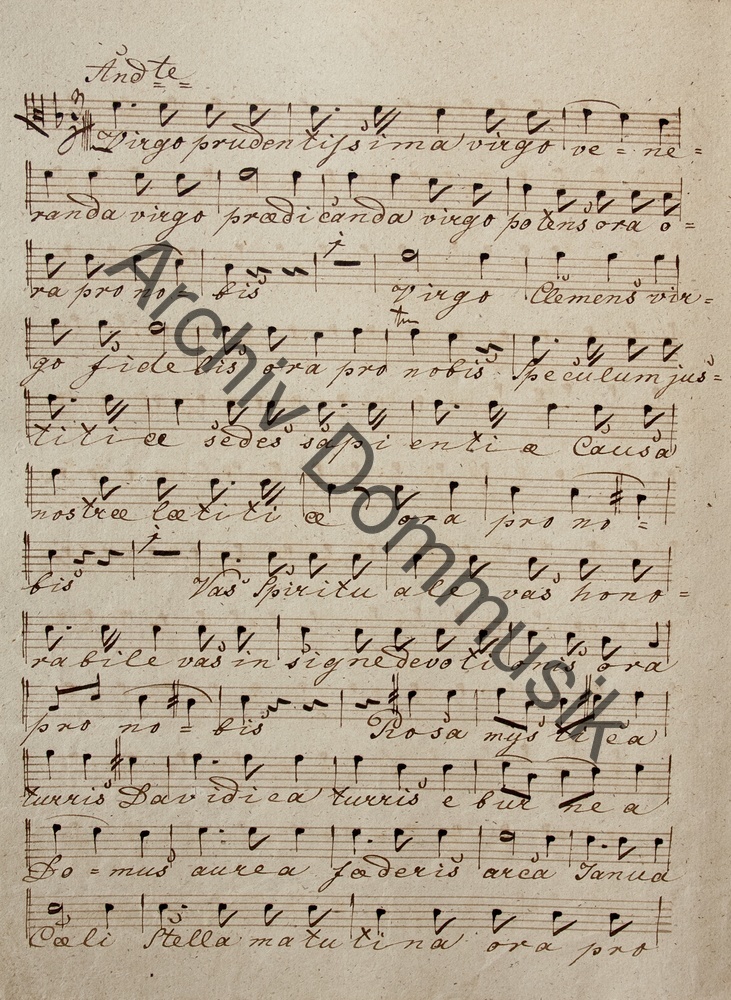 Andte
Virgo prudentissima virgo ve = ne =
randa virgo prædicanda virgo potens ora o =
ra pro no = bis 1 Virgo Clemens vir =
go fidelis ora pro nobis Speculum jus =
titiæ sedes sapientiæ Causa
nostræ lætitiæ ora pro no =
bis 1 Vas Spirituale vas hono =
rabile vas insigne devotionis ora
pro no = bis Rosa mystica
turris Davidica turris eburnea
Do = mus aurea fœderis arca Janua
Cœli Stella matutina ora pro
Archiv Dommusik